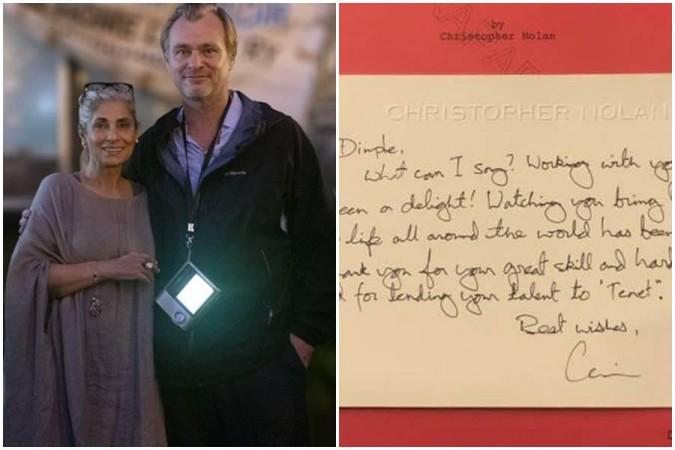 by
Christopher Nolan
CHRISTOPHER NOLAN
Dimple,
What can I say? Working with yo
een a delight! Watching you bring
life all around the world has been
ank you for your great skill and hard
for lending your talent to 'Tenet'.
Best wishes,